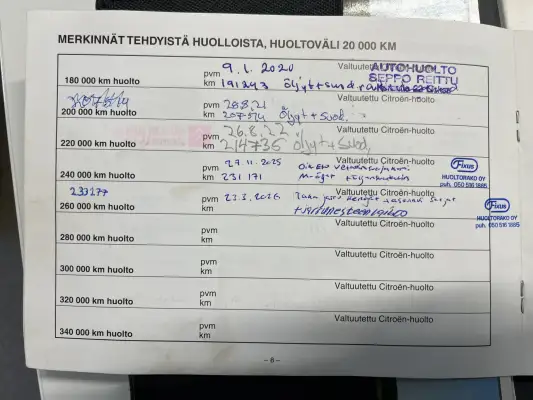 MERKINNÄT TEHDYISTÄ HUOLLOISTA, HUOLTOVÄLI 20 000 KM
180 000 km huolto pvm 9.1.2020 Valtuutettu Citroën-huolto
km 191293 Öljyt+suod.
AUTOHUOLTO
SEPPO REITTU
200 000 km huolto pvm 28.8.21 Valtuutettu Citroën-huolto
km 207514 Öljyt + Suod.
220 000 km huolto pvm 26.8.22 Valtuutettu Citroën-huolto
km 214735 Öljyt + Suod.
240 000 km huolto pvm 27.11.2025 Valtuutettu Citroën-huolto
km 231 171
Fixus
HUOLTORAKO OY
puh. 050 516 1885
233277
260 000 km huolto pvm 23.3.2026 Valtuutettu Citroën-huolto
km
Fixus
HUOLTORAKO OY
puh. 050 516 1885
280 000 km huolto pvm Valtuutettu Citroën-huolto
km
300 000 km huolto pvm Valtuutettu Citroën-huolto
km
320 000 km huolto pvm Valtuutettu Citroën-huolto
km
340 000 km huolto pvm Valtuutettu Citroën-huolto
km
– 6 –